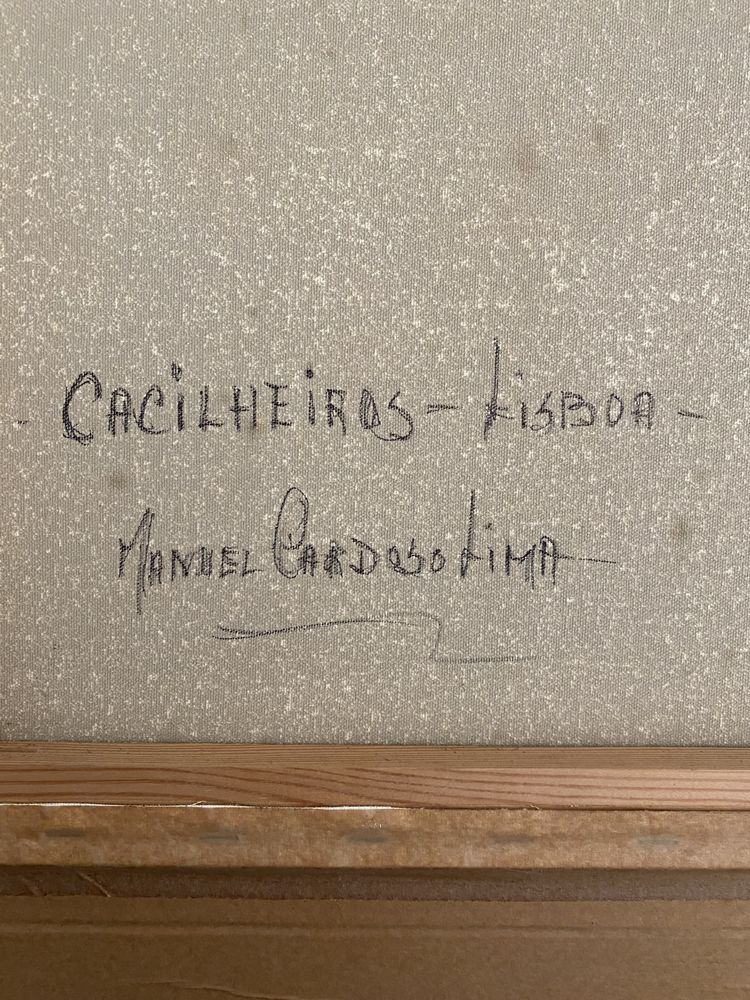 - CACiLHEiROS - LiSBOA -
MANUEL CARDOSO LiMA